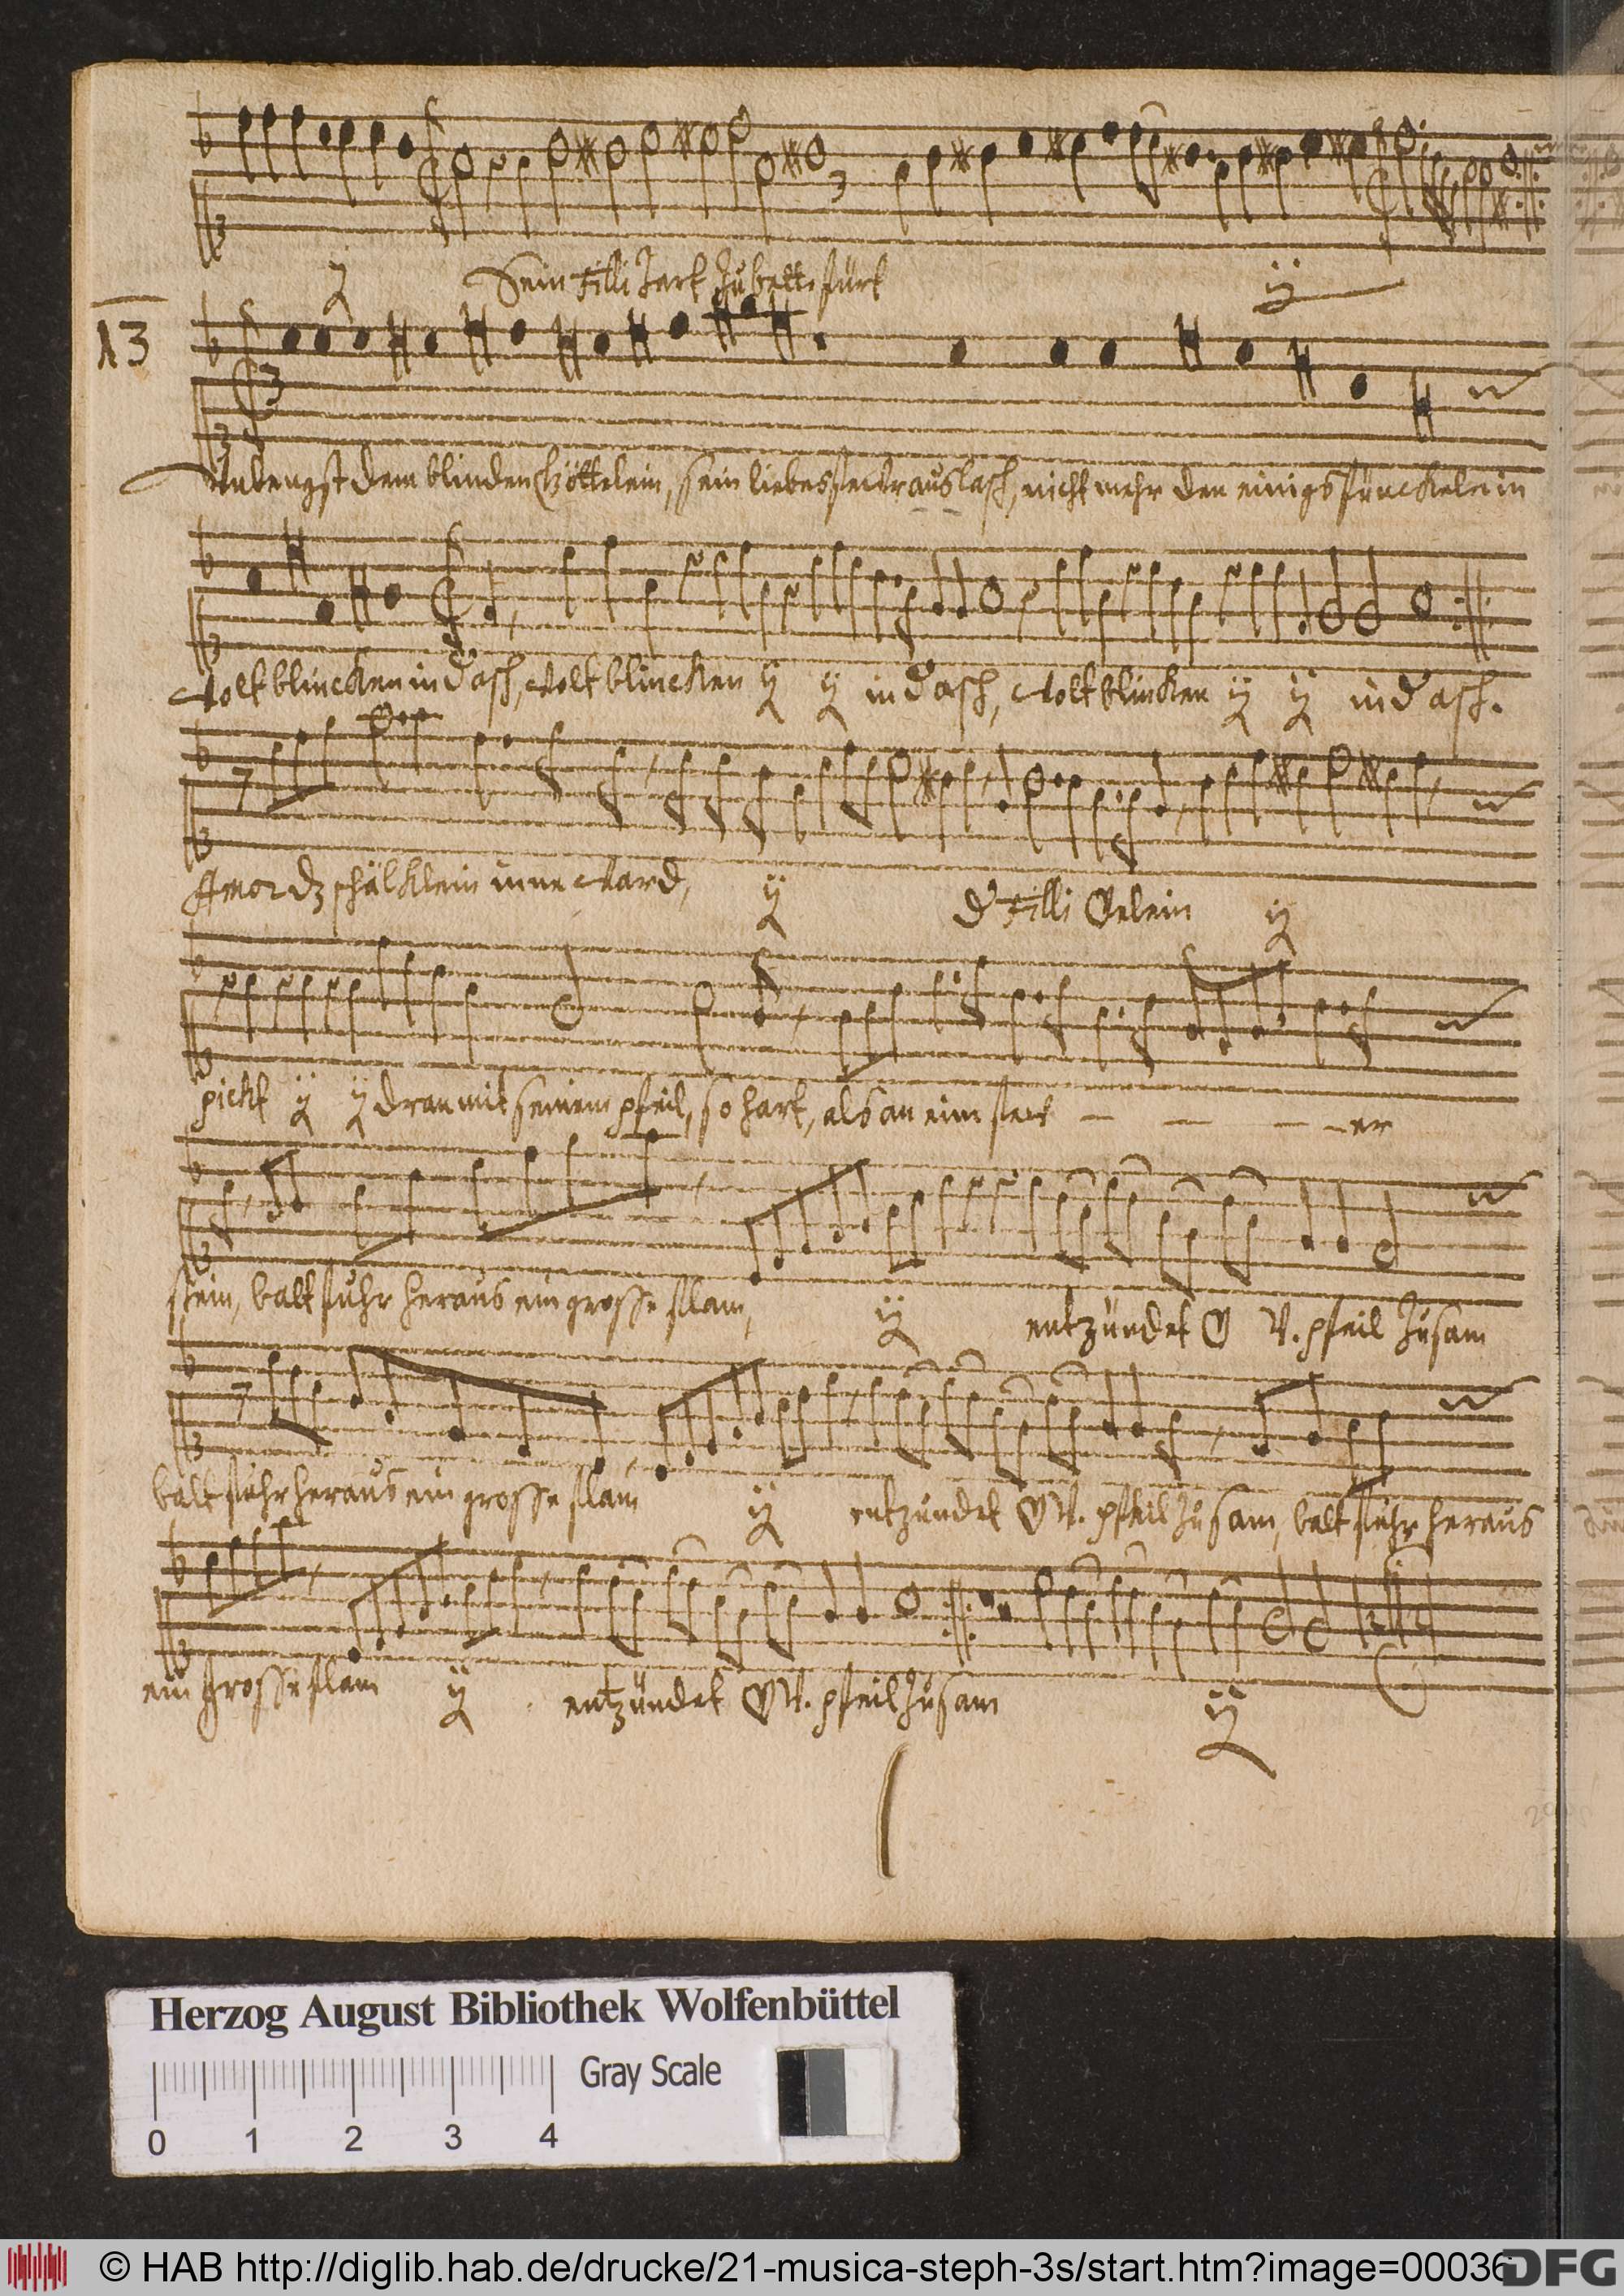 ÿ Sein Filli Zart zu bette fürt ÿ
13
dem blinden Göttelein, sein liebesfeur auslasch, nicht mehr den einigs fünckelein
wolt blincken in d asch, wolt blincken ÿ ÿ in d asch, wolt blincken ÿ ÿ in d asch.
Amor dz schälcklein inne ward, ÿ d Filli Gelein ÿ
pickt ÿ ÿ dran mit seinem pfeil, so hart, als an eim feur - - - - er
stein, balt fuhr heraus ein grosse flam, ÿ entzündet G V. pfeil zusam
balt fuhr heraus ein grosse flam ÿ entzündet G V. pfeil zusam, balt fuhr heraus
ein grosse flam ÿ entzündet G V. pfeil zusam ÿ
Herzog August Bibliothek Wolfenbüttel
Gray Scale
0 1 2 3 4
© HAB http://diglib.hab.de/drucke/21-musica-steph-3s/start.htm?image=00036
DFG